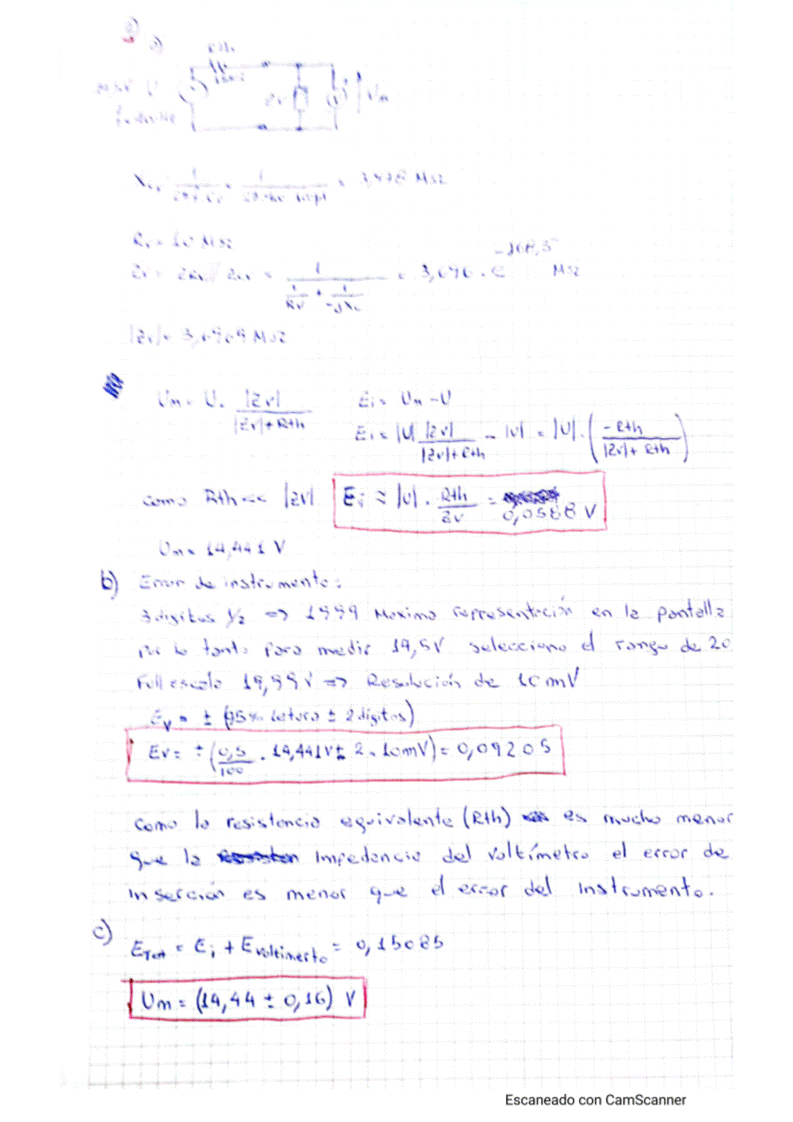 a)
Um
Xcv = 1/(2πf.Cv) = 1/ = 3,978 MΩ
Rv = 10 MΩ
Zv = ZRv // Zcv = 1/(1/Rv + 1/-jXc) = 3,696 . e MΩ
|Zv| = 3,6969 MΩ
Um = U . |Zv|/(|Zv|+Rth) Ei = Um - U
Ei = |U| |Zv|/(|Zv|+Rth) - |U| = |U| . (-Rth/(|Zv|+Rth))
como Rth << |Zv| Ei ≈ |U| . Rth/Zv = 0,0588 V
Um = 14,441 V
b) Error de instrumento:
3 digitos 1/2 => 1999 Maximo representación en la pantalla
por lo tanto para medir 14,5V selecciono el rango de 20
Full escala 19,99V => Resolución de 10mV
Ev = ± (0,5% Letura ± 2 digitos)
Ev = ± (0,5/100 . 14,441V ± 2 . 10mV) = 0,09205
Como la resistencia equivalente (Rth) es mucho menor
que la Impedancia del voltímetro el error de
Inserción es menor que el error del Instrumento.
c)
ETot = Ei + Evoltimerto = 0,15085
Um = (14,44 ± 0,16) V
Escaneado con CamScanner